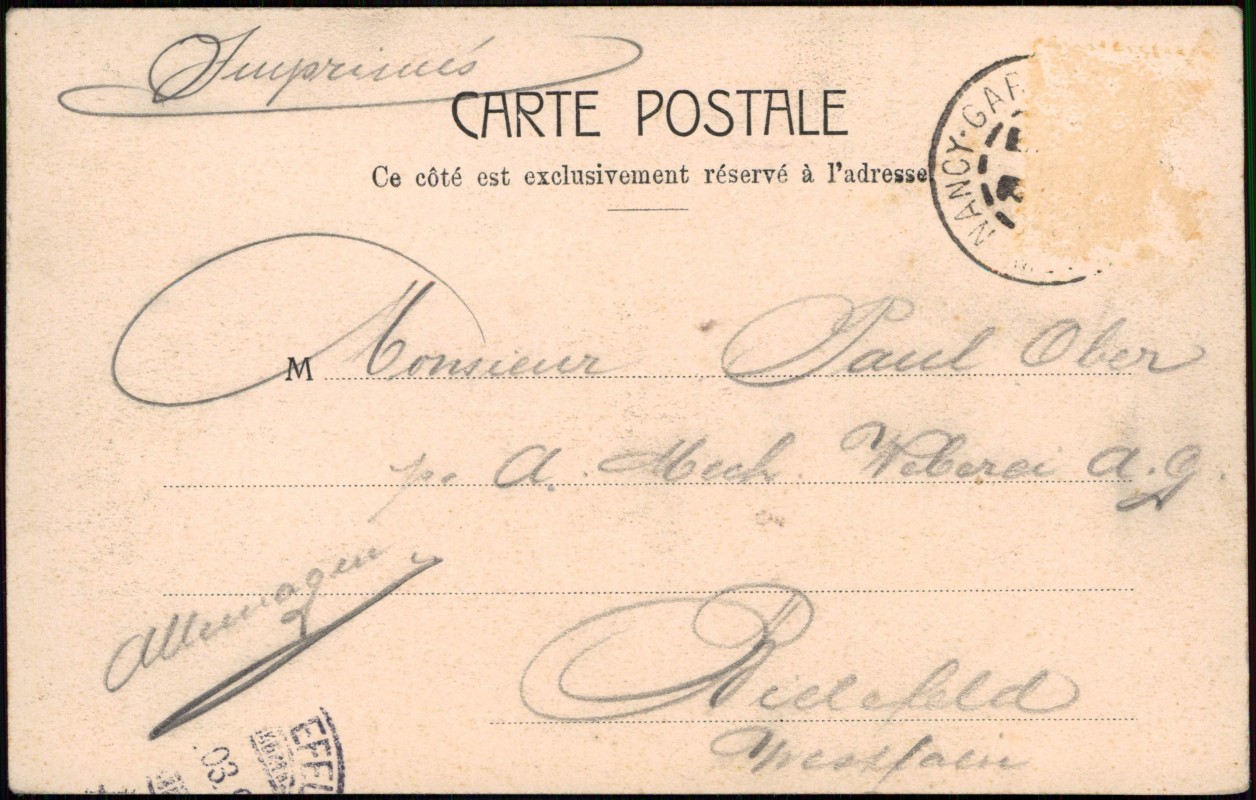 Imprimés
CARTE POSTALE
Ce côté est exclusivement réservé à l'adresse
NANCY-GAR
M Monsieur Paul Ober
p. A. Mech. Weberei A.G.
Allemagne
Bielefeld
Westfalen
EFEL
03.